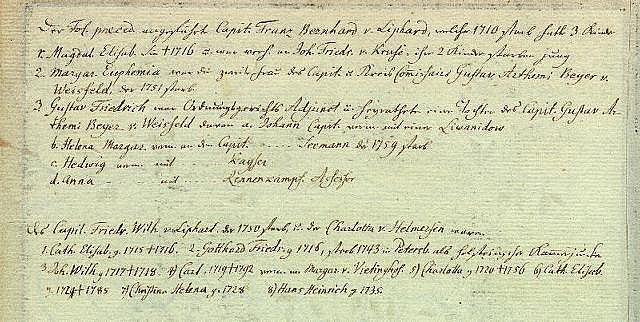 Der Fol. preced. angeführte Capit. Franz Bernhard v. Liphard, welcher 1710 starb hatte 3 Kinder
1. Magdal. Elisab. † 1716 u. war verh. an Joh. Friedr. v. ihre 2 Kinder starben jung
2. Margar. Euphemia war die zweite Frau des Capit. u. Kreis Comissairs Gustav Arthemi Beyer v.
Weisfeld, der 1751 starb.
3 Gustav Friedrich war Ordnungsgerichts Adjunct u. heyrathete eine Tochter des Capit. Gustav Ar-
themi Beyer v. Weisfeld davon a. Johann Capit. verm. mit einer Liwanidow
b. Helena Margar. verm. an den Capit. - - - - - Seemann der 1759 starb
c. Hedwig verm. mit Kayser
d. Anna - mit Rennenkampf. Assessor
Des Capit. Friedr. Wilh. v. Liphart. der 1750 starb, u. der Charlotta v. Helmersen waren.
1. Cath. Elisab. g. 1715 † 1716. 2. Gotthard Friedr. g 1716, starb 1743 in Petersb. als holsteinischer Kammerjunker
3 Joh. Wilh. g 1717 † 1718. 4) Carl. g 1719 † 1792 verm. an Margar. v. Vietinghof. 5) Charlotta g 1720 † 1756 6) Cath. Elisab.
g. 1724 † 1785 7) Christina Helena g. 1728 8) Hans Heinrich g 1735.